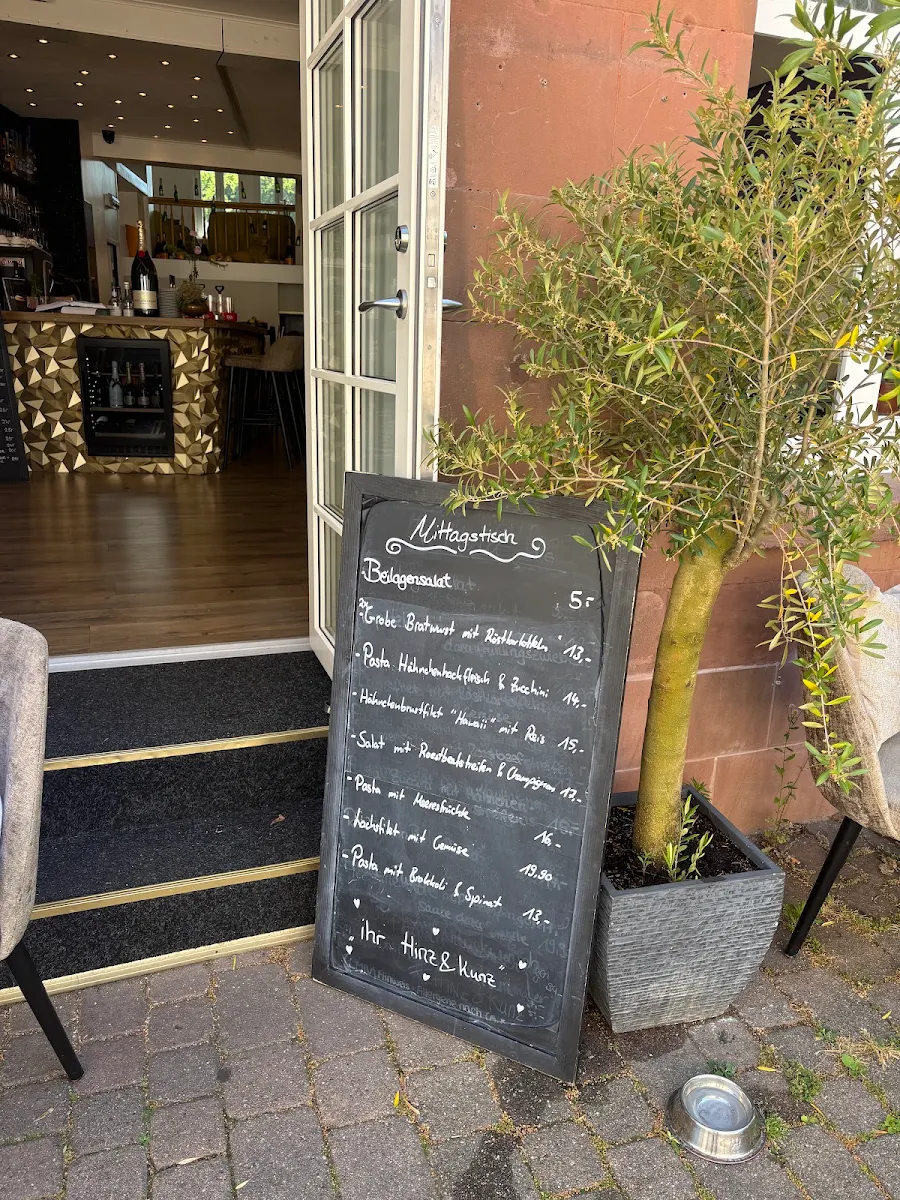 Mittagstisch
Beilagensalat 5.-
- Grobe Bratwurst mit Röstkartoffeln 13,-
- Pasta Hähnchenhackfleisch & Zucchini 14,-
- Hähnchenbrustfilet "Hawaii" mit Reis 15,-
- Salat mit Roastbeefstreifen & Champignons 17,-
- Pasta mit Meeresfrüchte 16,-
- Lachsfilet mit Gemüse 19,90
- Pasta mit Brokkoli & Spinat 13,-
"ihr Hinz & Kunz"